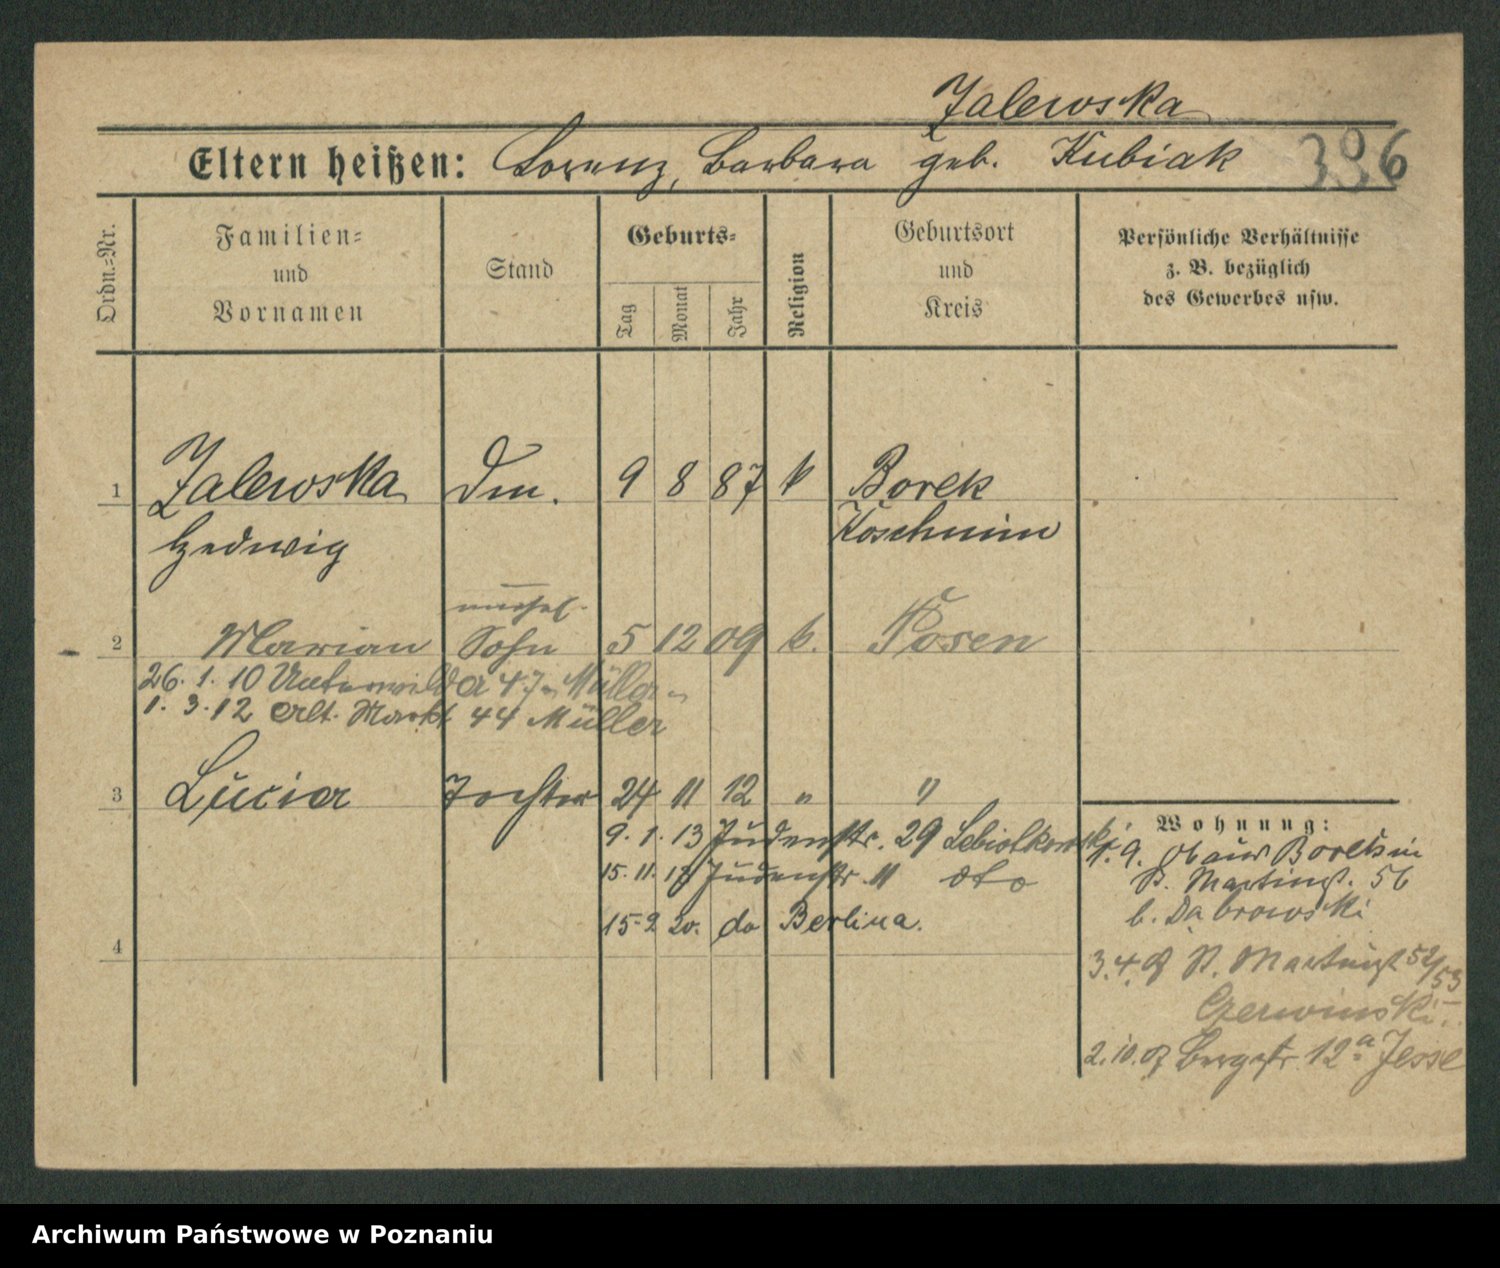 Zalewska
Eltern heißen: Lorenz, Barbara geb. Kubiak 396
Ordn.-Nr.
Familien-
und
Vornamen
Stand
Geburts-
Tag
Monat
Jahr
Religion
Geburtsort
und
Kreis
Persönliche Verhältnisse
z. B. bezüglich
des Gewerbes usw.
1 Zalewska Dm. 9 8 87 k Borek
Hedwig Koschmin
unehel.
2 Marian Sohn 5 12 09 k. Posen
26. 1. 10 Unterwilda 47 Müller
1. 3. 12 Alt. Markt 44 Müller
3 Lucia Tochter 24 11 12 " "
9. 1. 13 Judenstr. 29 Lebiotkowski
15. 11. Judenstr. 11 dto
15 2 20. do Berlina.
4
Wohnung:
1. 9. aus Borek in
St. Martinst. 56
b. Dabrowski
3. 4. St. Martinst 52/53
Czerwinski
2. 10. Bergstr. 12a Jesse
Archiwum Państwowe w Poznaniu